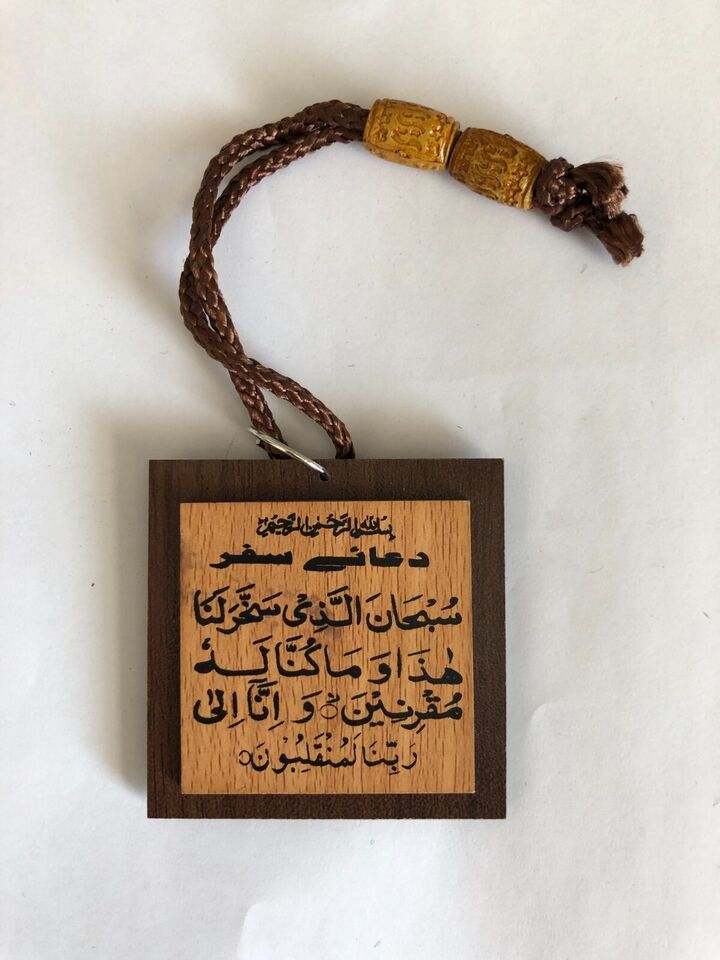 بسم الله الرحمن الرحیم
دعائے سفر
سُبْحَانَ الَّذِیْ سَخَّرَ لَنَا
هٰذَا وَ مَا كُنَّا لَهٗ
مُقْرِنِیْنَ ۙ وَ اِنَّا اِلٰی
رَبِّنَا لَمُنْقَلِبُوْنَ